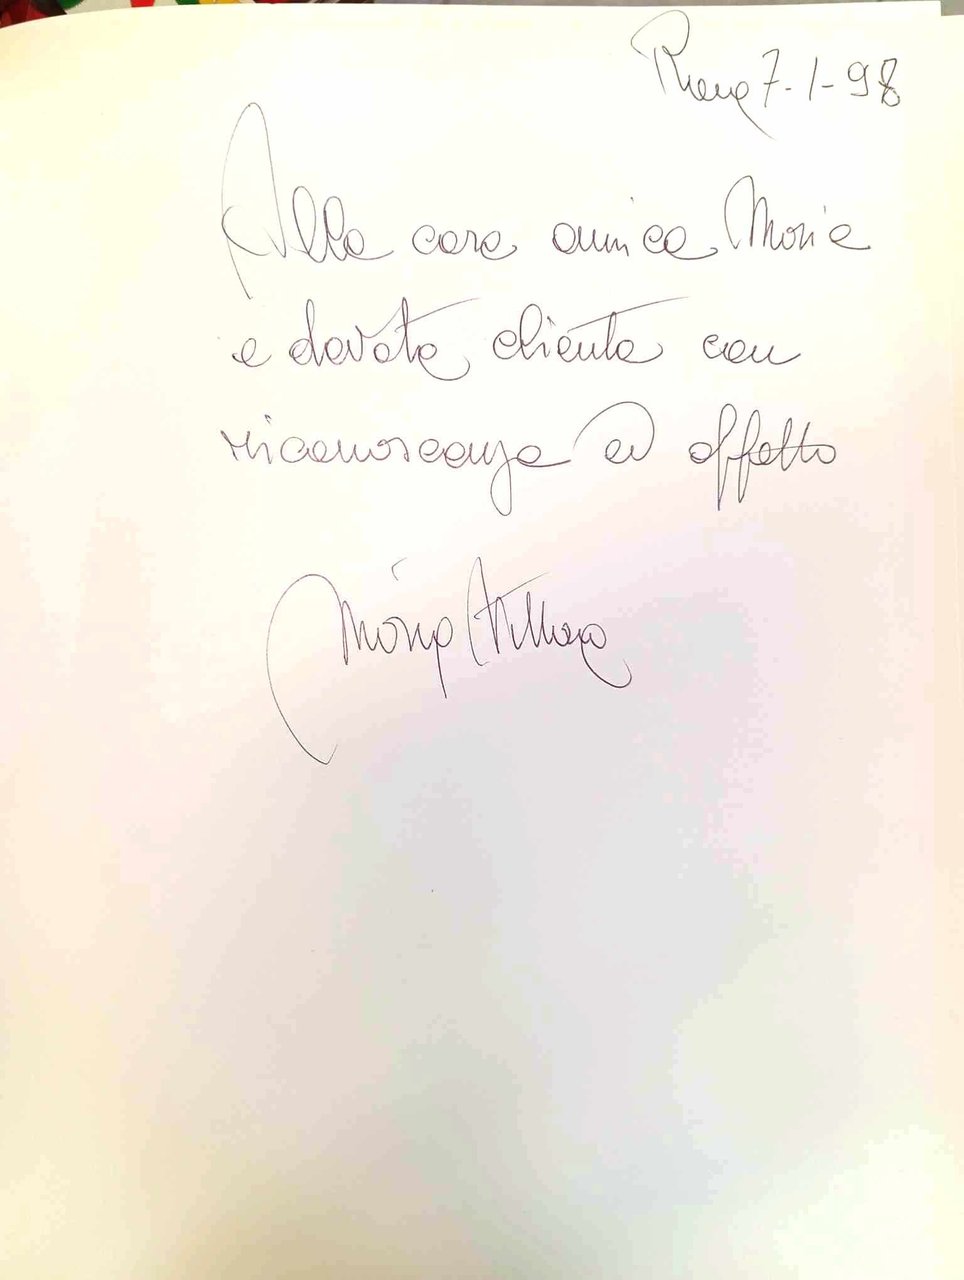 Roma 7-1-98
Alla cara amica Maria
e devota cliente con
riconoscenza ed affetto